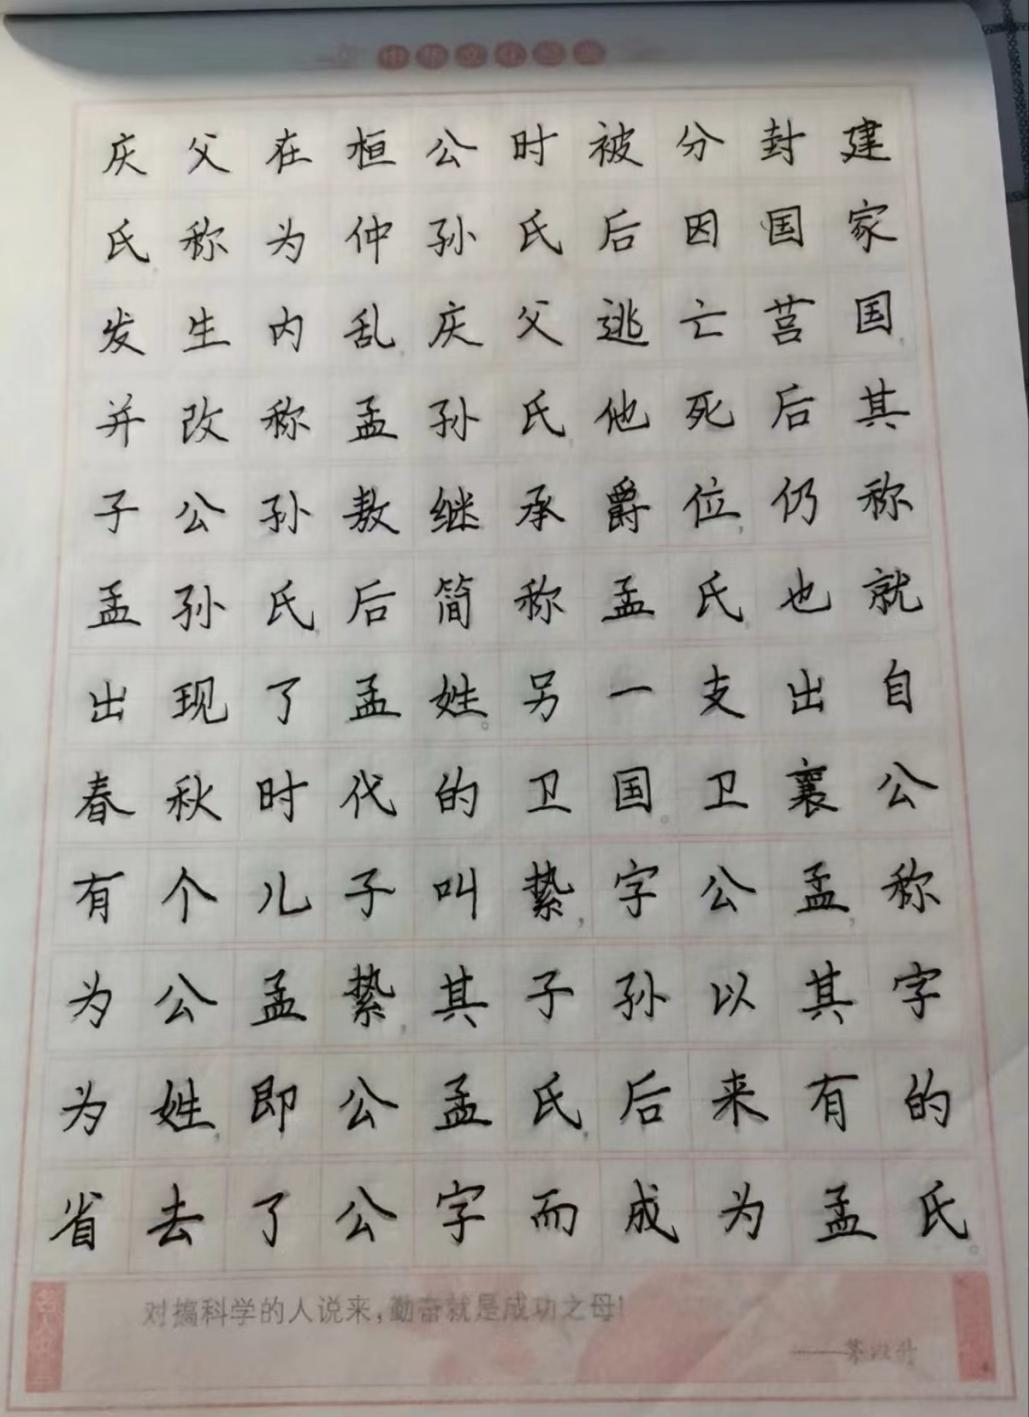 庆父在桓公时被分封建
氏,称为仲孙氏后因国家
发生内乱,庆父逃亡莒国,
并改称孟孙氏,他死后其
子公孙敖继承爵位,仍称
孟孙氏,后简称孟氏,也就
出现了孟姓。另一支出自
春秋时代的卫国。卫襄公
有个儿子叫絷,字公孟,称
为公孟絷,其子孙以其字
为姓,即公孟氏,后来有的
省去了公字而成为孟氏。
对搞科学的人说来,勤奋就是成功之母!